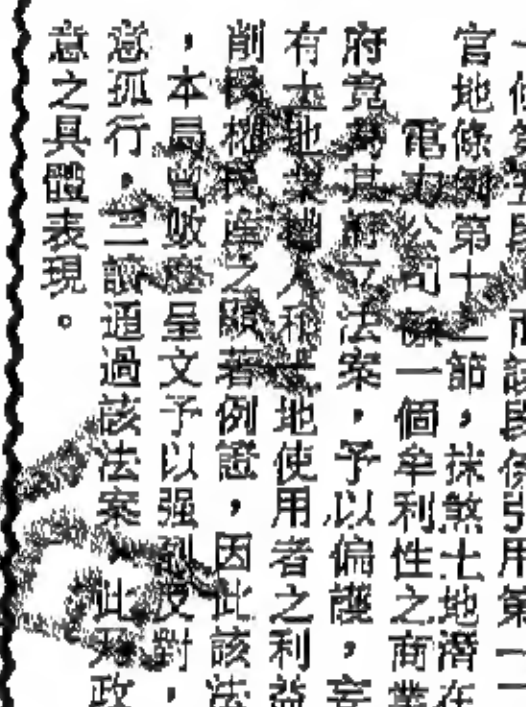 一條第 段 而該段係引用第一
官地條例第十二節，抹煞土地潛在
電力公司 一個牟利性之商業
府竟為其 立法案，予以偏護，妄
有土地業權人和土地使用者之利益
削 權 之顯著例證，因此該法
，本局曾 呈文予以強 反對，
意孤行，三讀通過該法案 此 政
意之具體表現。